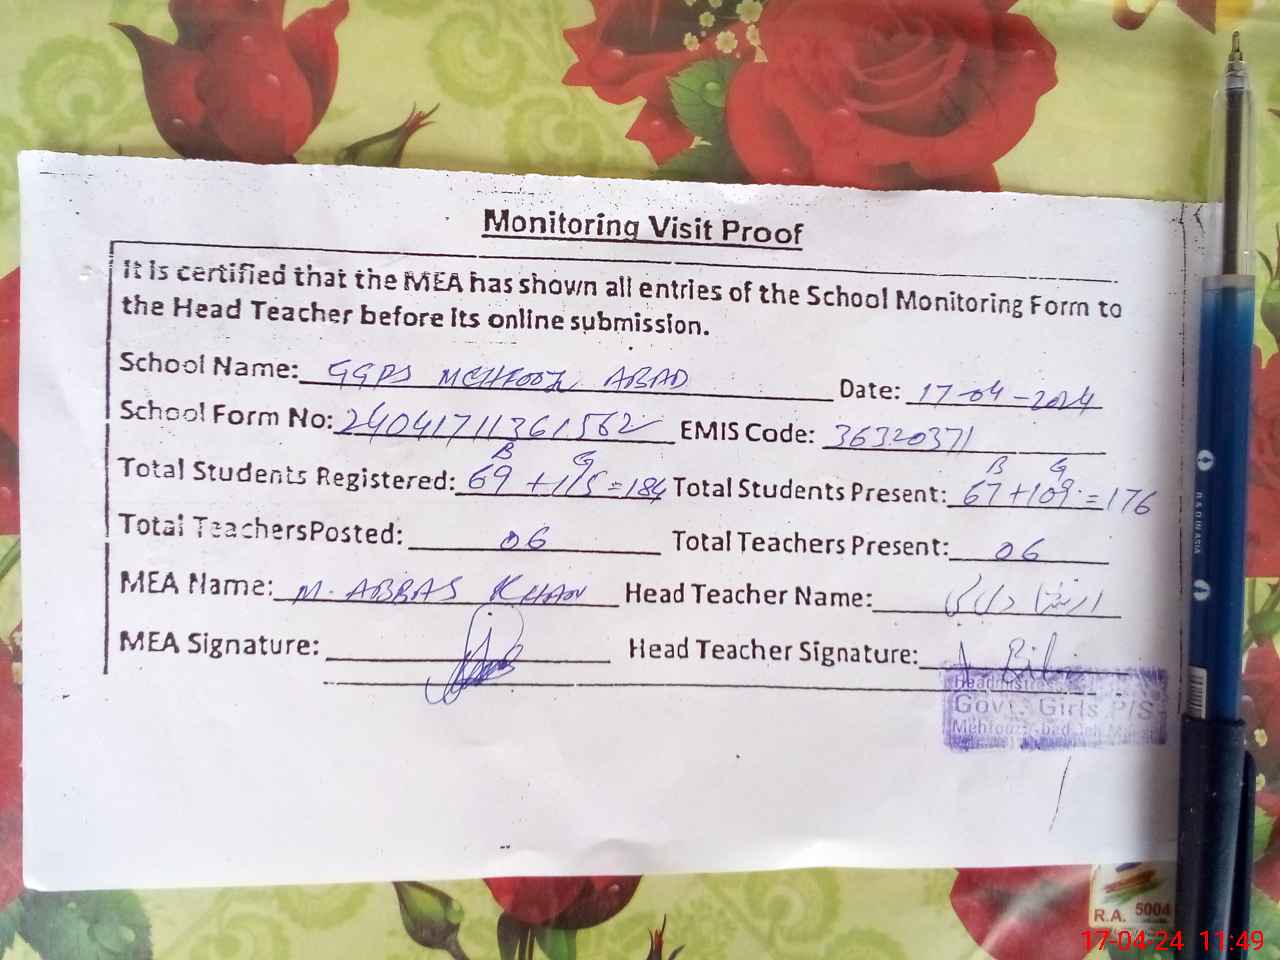 Monitoring Visit Proof
It is certified that the MEA has shown all entries of the School Monitoring Form to
the Head Teacher before its online submission.
School Name: GGPS MEHFOOZ ABAD Date: 17-04-2024
School Form No: 24041711361562 EMIS Code: 36320371
B G B G
Total Students Registered: 69 +115=184 Total Students Present: 67+109=176
Total Teachers Posted: 06 Total Teachers Present: 06
MEA Name: M. ABBAS KHAN Head Teacher Name:
MEA Signature: Head Teacher Signature:
Headmistress
Govt. Girls P/S
R.A. 5004
17-04-24 11:49